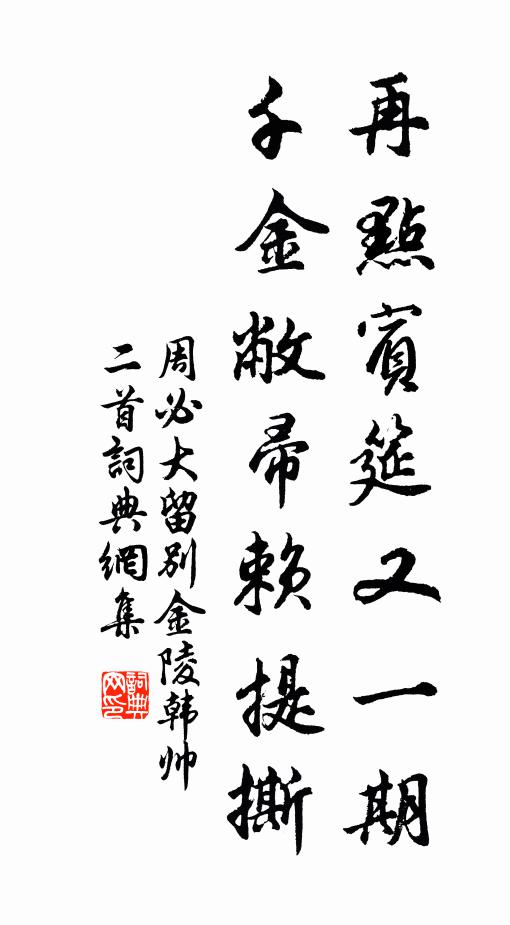 再點賓筵又一期
千金敝帚賴提撕
周必大留別金陵韩帅
二首詞典網集
詞典網印